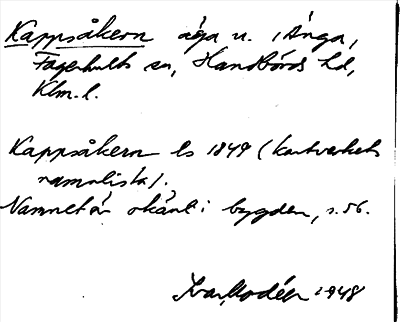 Kappsåkern äga n. i Ånga,
Fagerhults sn, Handbörds hd,
Klm. l.
Kappsåkern ls 1849 (kartverkets
namnlista).
Namnet är okänt i bygden, s. 56.
Ivar Modéer 1948